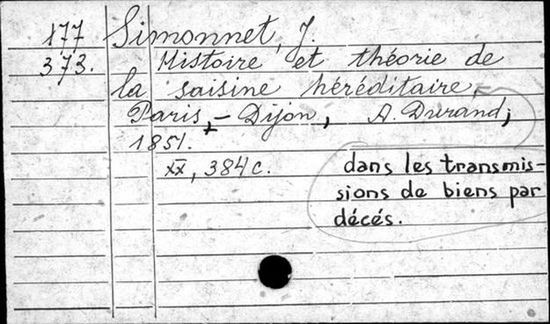 177 Simonnet, J.
373. Histoire et théorie de
la saisine héréditaire
Paris, - Dijon, A. Durand,
1851.
XX, 384 c.
dans les transmis-
sions de biens par
décés.